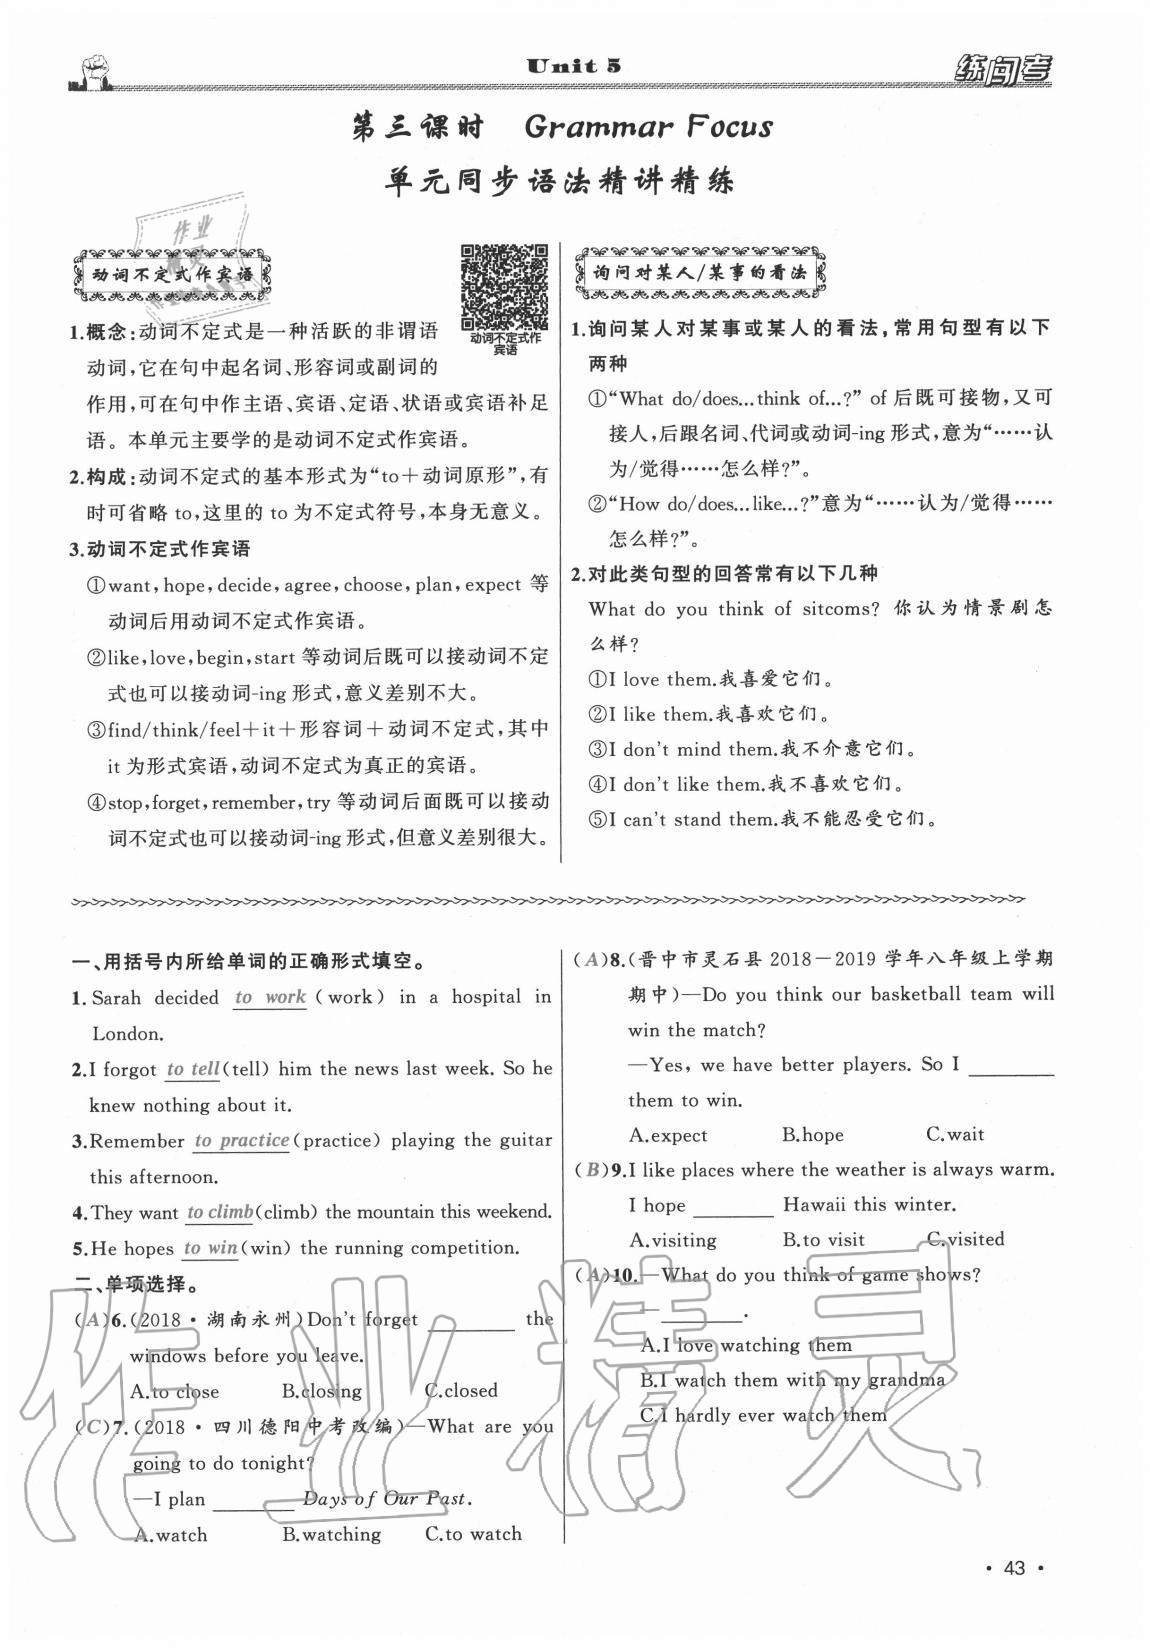 Unit 5
练闯考
第三课时 Grammar Focus
单元同步语法精讲精练
动词不定式作宾语
动词不定式作
宾语
1.概念:动词不定式是一种活跃的非谓语
动词,它在句中起名词、形容词或副词的
作用,可在句中作主语、宾语、定语、状语或宾语补足
语。本单元主要学的是动词不定式作宾语。
2.构成:动词不定式的基本形式为“to+动词原形”,有
时可省略 to,这里的 to 为不定式符号,本身无意义。
3.动词不定式作宾语
①want, hope, decide, agree, choose, plan, expect 等
动词后用动词不定式作宾语。
②like,love,begin,start 等动词后既可以接动词不定
式也可以接动词-ing 形式,意义差别不大。
③find/think/feel+it+形容词+动词不定式,其中
it 为形式宾语,动词不定式为真正的宾语。
④stop,forget,remember,try 等动词后面既可以接动
词不定式也可以接动词-ing 形式,但意义差别很大。
询问对某人/某事的看法
1.询问某人对某事或某人的看法,常用句型有以下
两种
①“What do/does...think of...?” of 后既可接物,又可
接人,后跟名词、代词或动词-ing 形式,意为“……认
为/觉得……怎么样?”。
②“How do/does...like...?”意为“……认为/觉得……
怎么样?”。
2.对此类句型的回答常有以下几种
What do you think of sitcoms? 你认为情景剧怎
么样?
①I love them.我喜爱它们。
②I like them.我喜欢它们。
③I don't mind them.我不介意它们。
④I don't like them.我不喜欢它们。
⑤I can't stand them.我不能忍受它们。
一、用括号内所给单词的正确形式填空。
1. Sarah decided to work (work) in a hospital in
London.
2.I forgot to tell(tell) him the news last week. So he
knew nothing about it.
3.Remember to practice(practice) playing the guitar
this afternoon.
4.They want to climb(climb) the mountain this weekend.
5.He hopes to win(win) the running competition.
二、单项选择。
(A)6.(2018·湖南永州)Don't forget ________ the
windows before you leave.
A.to close B.closing C.closed
(C)7.(2018·四川德阳中考改编)—What are you
going to do tonight?
—I plan ________ Days of Our Past.
A.watch B.watching C.to watch
(A)8.(晋中市灵石县 2018-2019 学年八年级上学期
期中)—Do you think our basketball team will
win the match?
—Yes, we have better players. So I ________
them to win.
A.expect B.hope C.wait
(B)9.I like places where the weather is always warm.
I hope ________ Hawaii this winter.
A.visiting B.to visit C.visited
(A)10.—What do you think of game shows?
—________.
A.I love watching them
B.I watch them with my grandma
C.I hardly ever watch them
作业精灵
· 43 ·